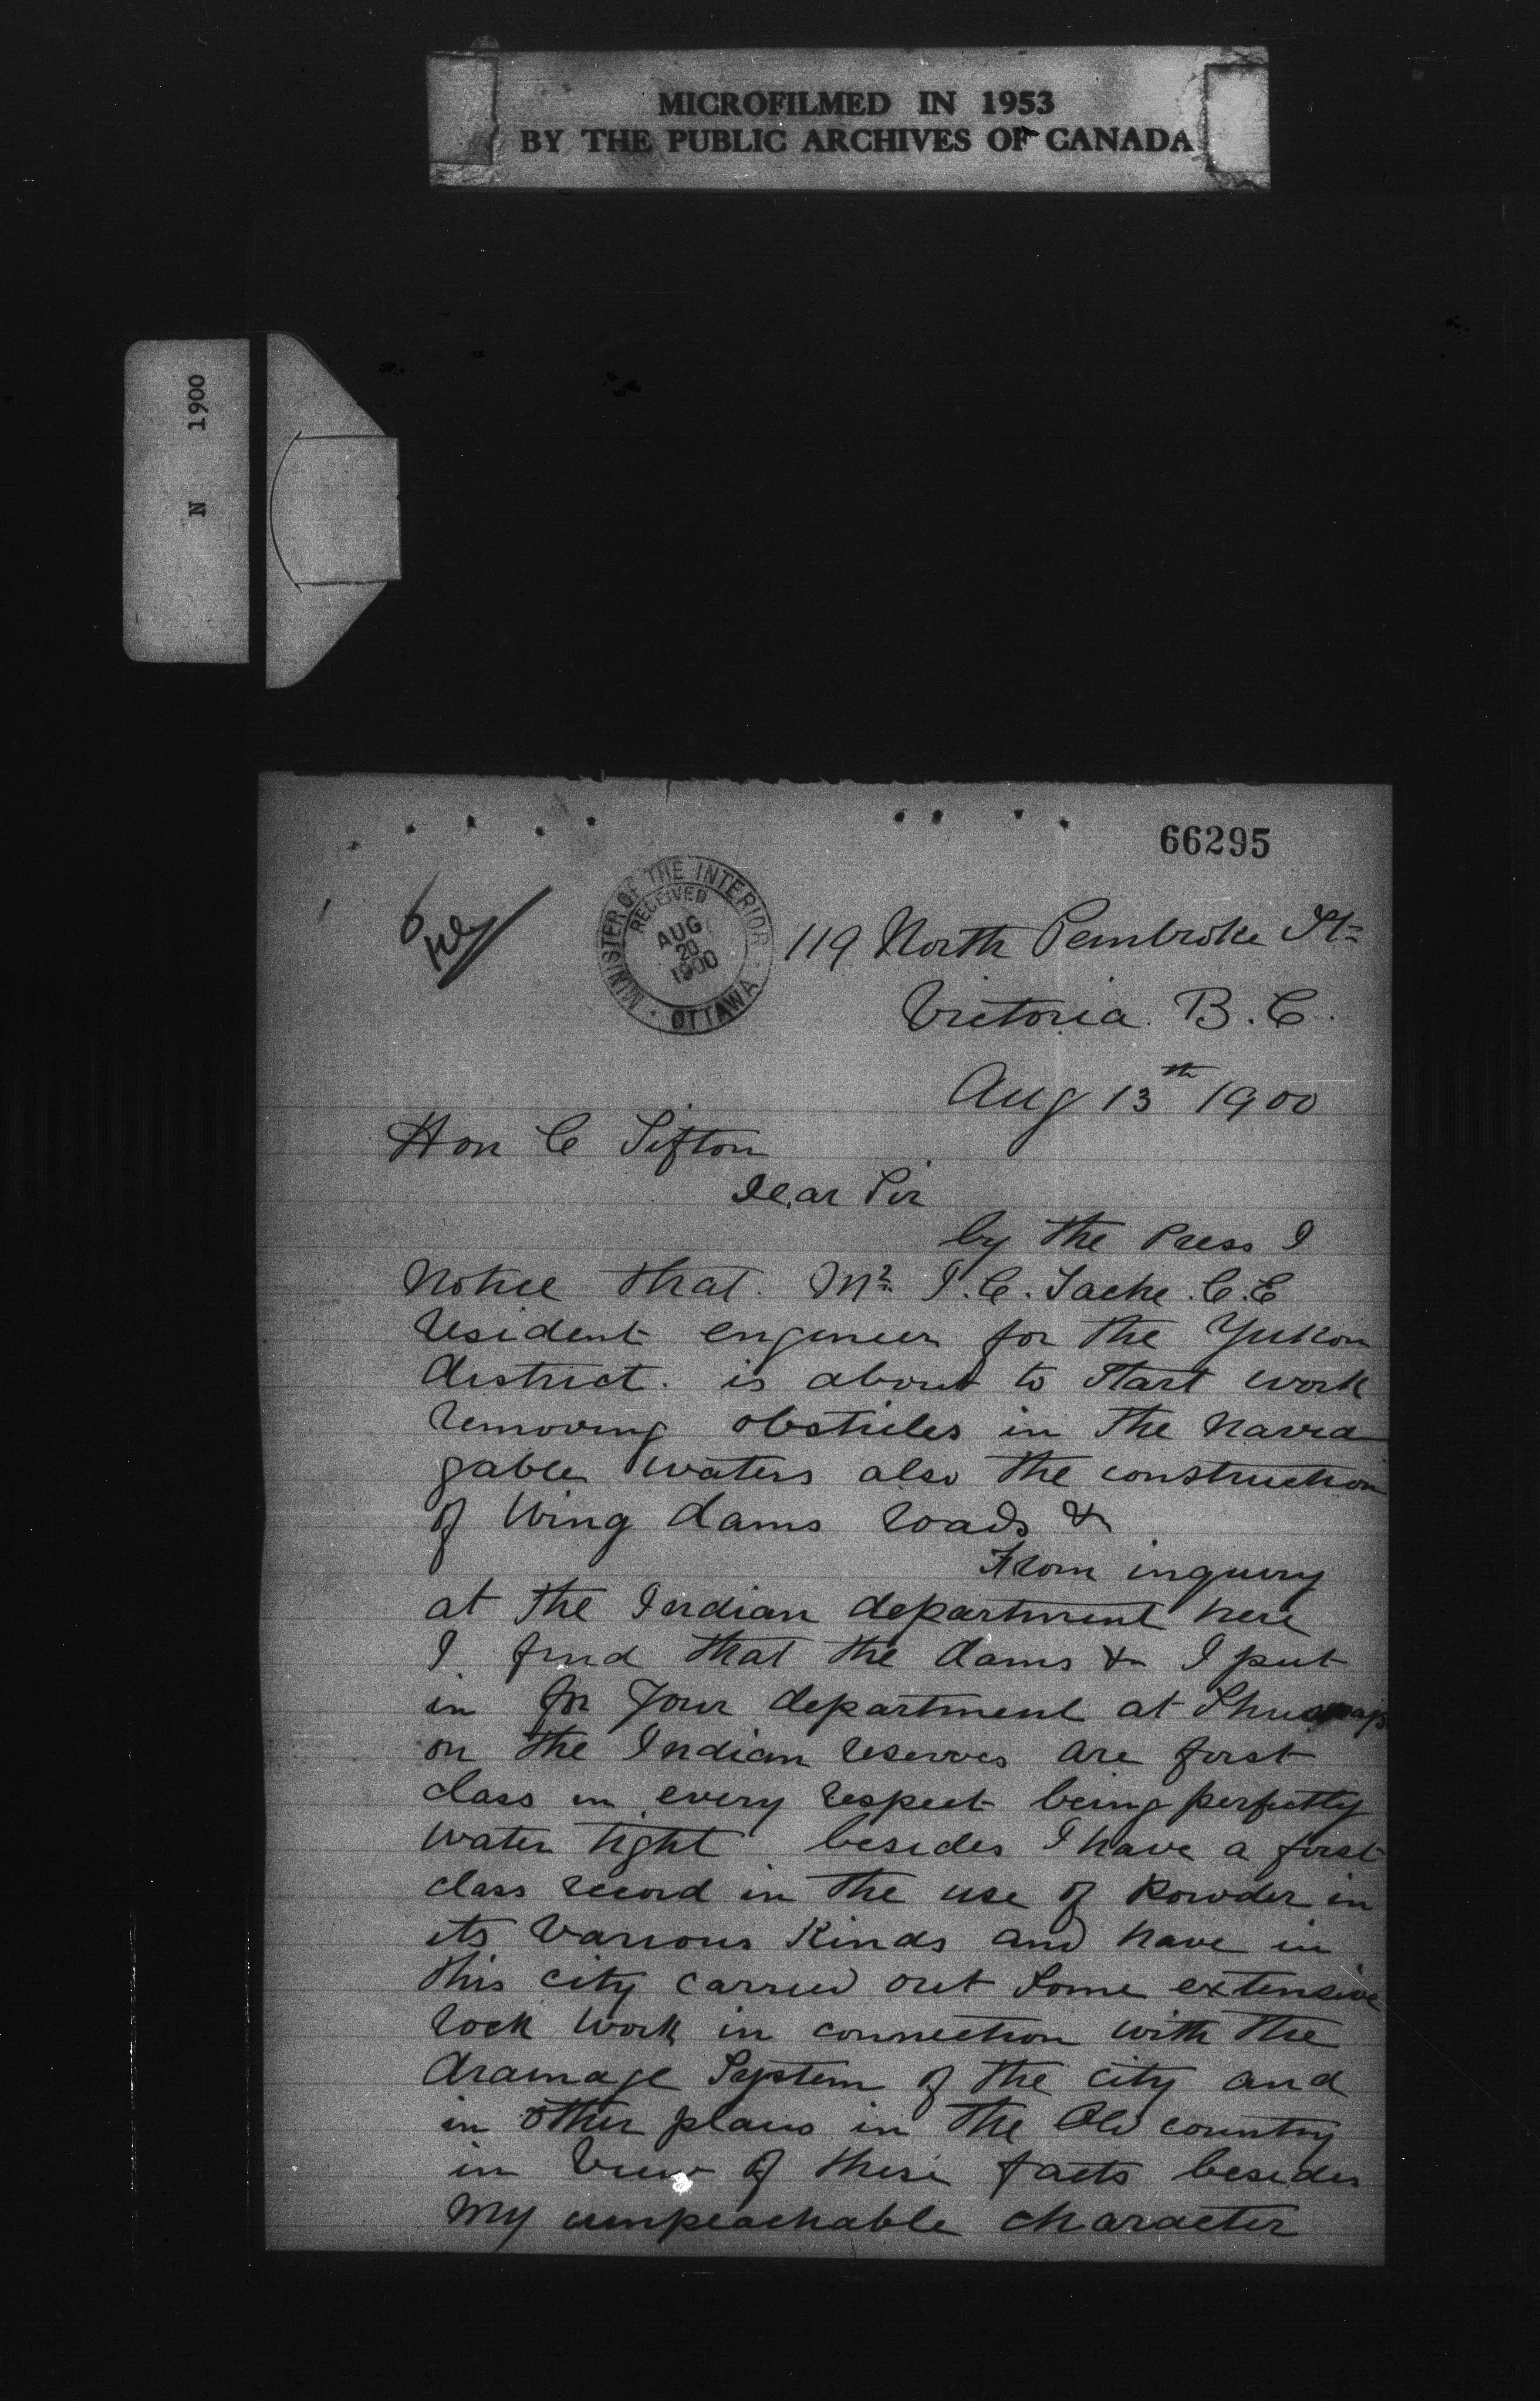 MICROFILMED IN 1953
BY THE PUBLIC ARCHIVES OF CANADA
N 1900
66295
MINISTER OF THE INTERIOR
RECEIVED
AUG
20
1900
OTTAWA
119 North Pembroke St
Victoria B.C.
Aug 13th 1900
Hon C Sifton
Dear Sir
by the Press I
Notice that Mr J.C. Tache C.E
resident engineer for the Yukon
district. is about to start work
removing obsticles in the navia
gable waters also the construction
of Wing dams roads &
From inquiry
at the Indian department here
I find that the dams & I put
in for your department at Shuswap
on the Indian reserves are first
class in every respect being perfectly
water tight besides I have a first
class record in the use of Powder in
its various kinds and have in
this city carried out some extensive
rock work in connection with the
drainage System of the city and
in other places in the Old country
in view of these facts besides
my umpeachable character